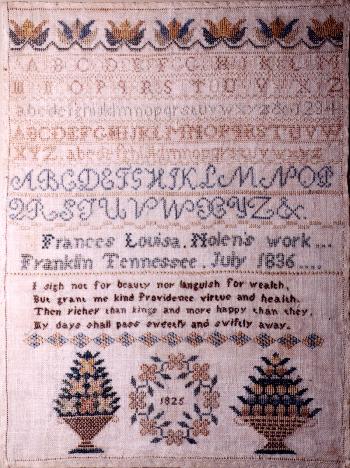 A B C D E F G H I K L
M N O P Q R S T U V W X Z
abcdefghijklmnopqrstuvwxyz&1234
ABCDEFGHIJKLMNOPQRSTUVW
XYZ. abcdefghijklmnopqrstuvwxyz
ABCDEFGHIKLMNOP
QRSTUVWXYZ&c.
Frances Louisa. Nolen's work...
Franklin Tennessee. July 1836....
I sigh not for beauty nor languish for wealth,
But grant me kind Providence virtue and health.
Then richer than kings and more happy than they,
My days shall pass sweetly and swiftly away.
1825